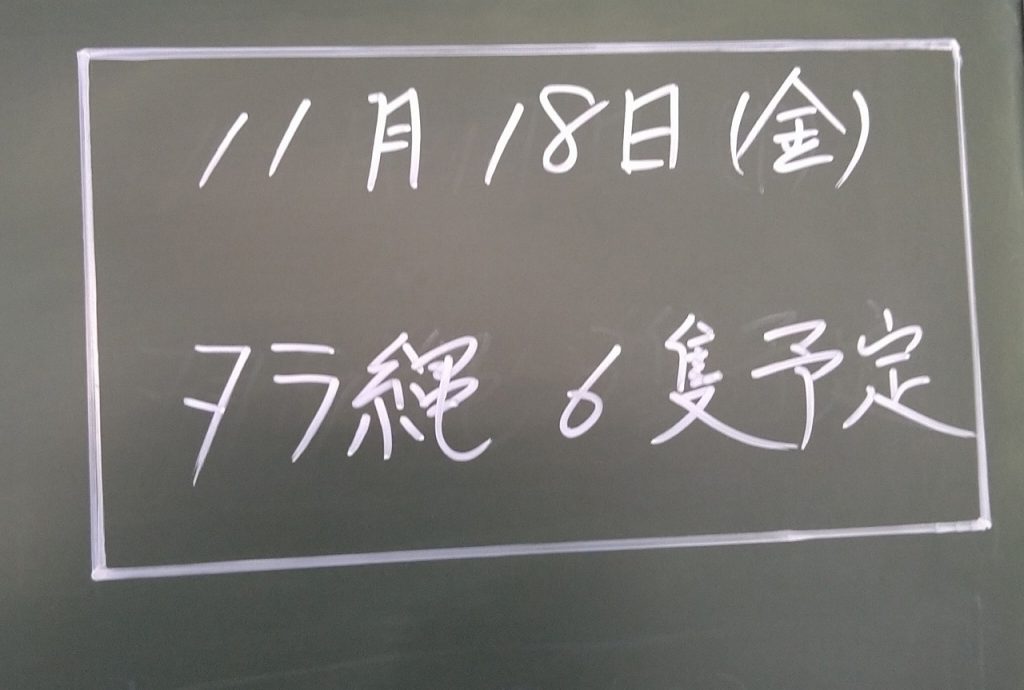 11月18日(金)
タラ縄 6隻予定